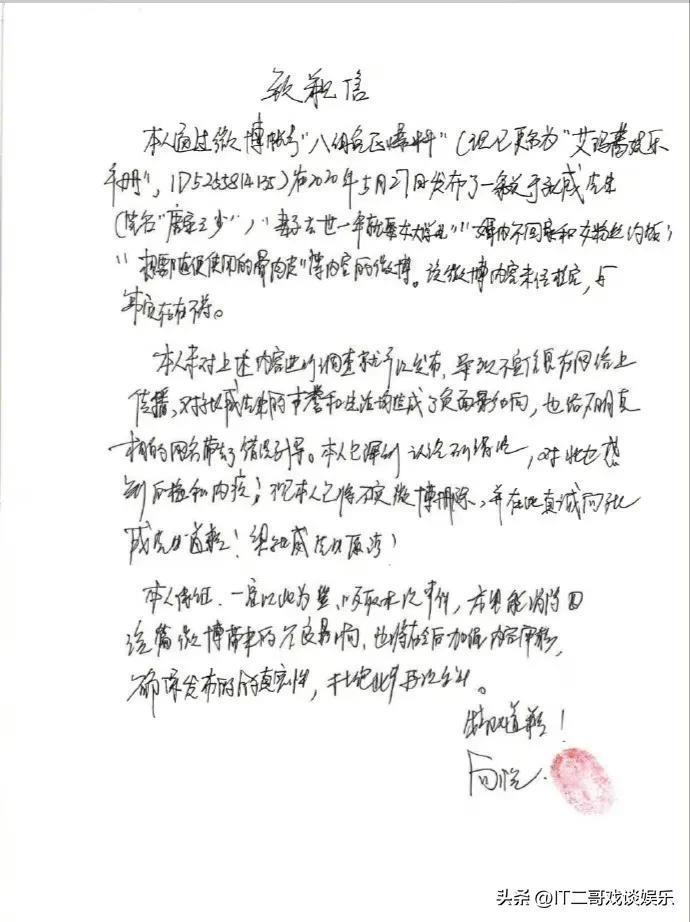 致歉信
本人通过微博帐号"八组兔区爆料"(现已更名为"艾玛酱娱乐
手册", ID5255814135)在2020年5月27日发布了一条关于张威先生
(笔名"唐家三少")"妻子去世一年就要女大学生""
想要随便使用的骨肉皮"等内容的微博。该微博内容未经核实,与
事实存在不符。
本人未对上述内容进行调查就予以发布,导致不实信息在网络上
传播,对张威先生的声誉和生活均造成了负面影响,也给不明真
相的网名带去了错误引导。本人已深刻认识到错误,对此感
到后悔和内疚;现本人已将不实微博删除,并在此真诚向张
威先生道歉!望张威先生原谅!
本人保证,一定以此为鉴,吸取本次事件,尽量能消除因
这篇微博带来的不良影响,也将在今后加强内容审核,
确保发布内容的真实性,杜绝此事再次发生。
特此道歉!
头条@IT二哥戏谈娱乐